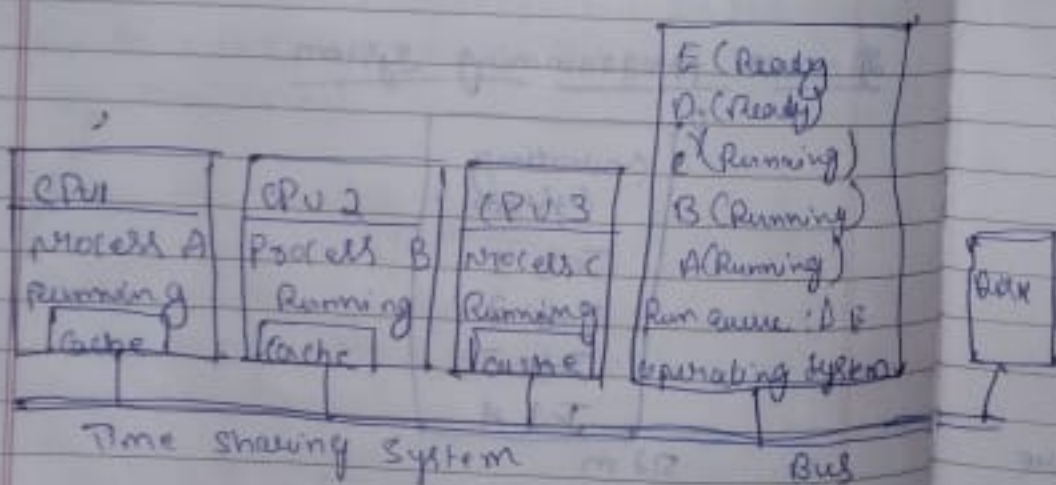 CPU1
Process A
Running
Cache
CPU 2
Process B
Running
Cache
CPU 3
Process C
Running
Cache
E (Ready
D. (Ready)
C (Running)
B (Running)
A (Running)
Run queue : D E
Operating System
Time sharing System
Bus